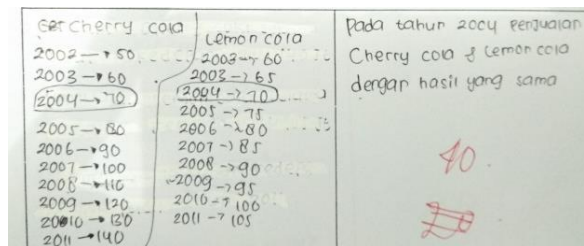 Cherry cola
2002 → 50
2003 → 60
2004 → 70
2005 → 80
2006 → 90
2007 → 100
2008 → 110
2009 → 120
2010 → 130
2011 → 140
Lemon cola
2002 → 60
2003 → 65
2004 → 70
2005 → 75
2006 → 80
2007 → 85
2008 → 90
2009 → 95
2010 → 100
2011 → 105
Pada tahun 2004 Penjualan
Cherry cola & Lemon cola
dengan hasil yang sama
10